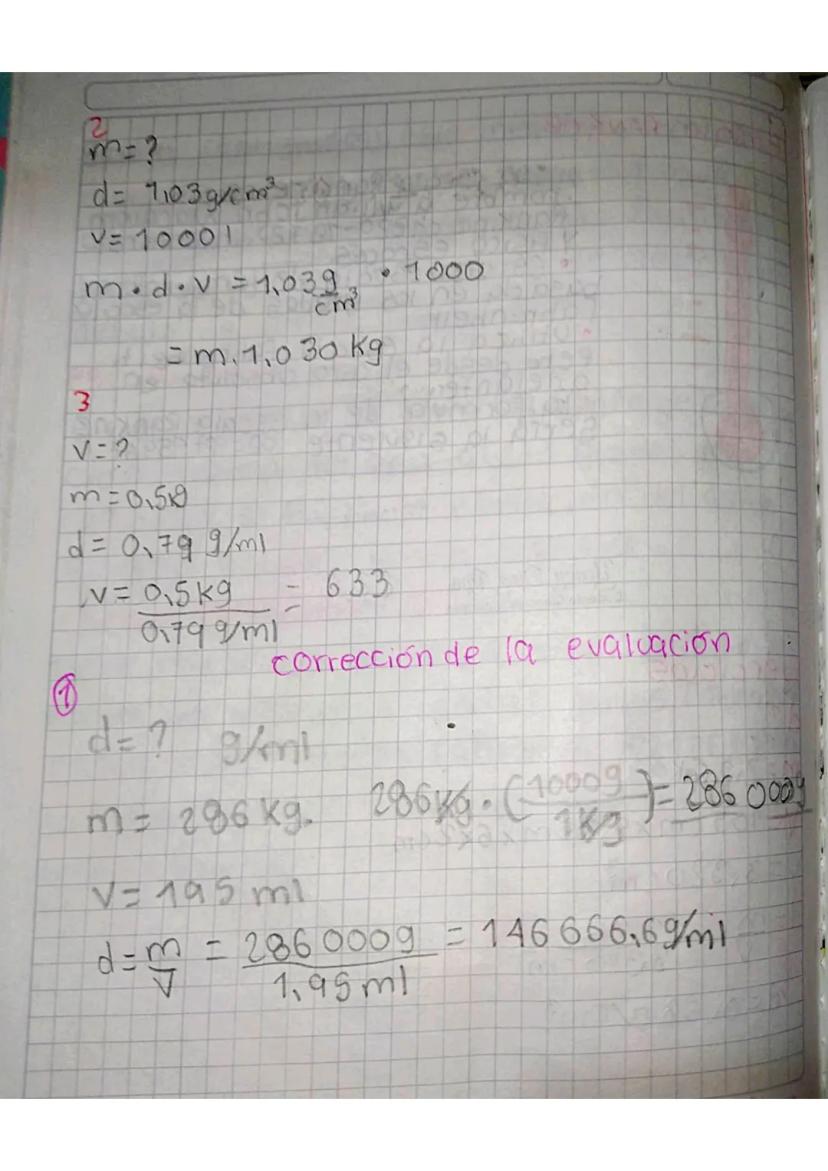 2
m=?
d= 1,03g/cm³
v= 1000l
m·d·v = 1,03g/cm³ · 1000
= m.1,030 kg
3
v=?
m=0,5kg
d= 0,79 g/ml
v= 0,5kg / 0,79 g/ml = 633
corrección de la evaluación
1
d=? g/ml
m= 286 kg. 286kg · (1000g / 1kg) = 286 000g
v= 195 ml
d= m/v = 286 000g / 1,95ml = 146 666,6g/ml